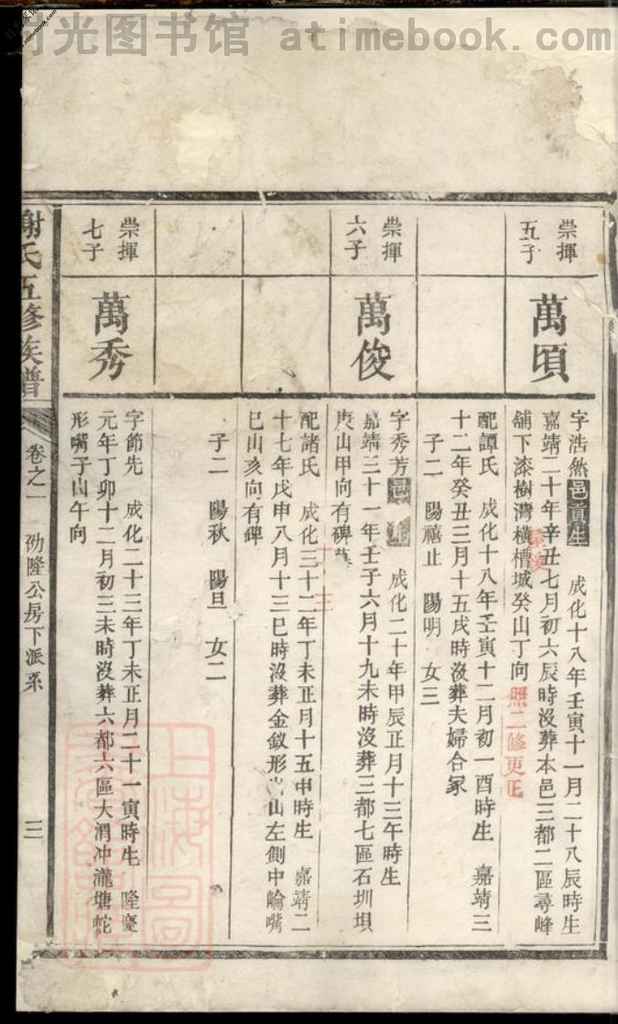 时光图书馆 atimebook.com
崇揮
五子
萬頃
字浩然邑庠生 成化十八年壬寅十一月二十八辰時生
嘉靖二十年辛丑七月初六辰時沒葬本邑三都二區尋峰
舖下漆樹灣橫槽城癸山丁向照二修更正
配譚氏 成化十八年壬寅十二月初一酉時生 嘉靖三
十二年癸丑三月十五戌時沒葬夫婦合冢
子二 陽禧止 陽明 女三
崇揮
六子
萬俊
字秀芳邑 成化二十年甲辰正月十三午時生
嘉靖三十一年壬子六月十九未時沒葬三都七區石圳垻
庚山甲向有碑
配諸氏 成化三十二年丁未正月十五申時生 嘉靖二
十七年戊申八月十三巳時沒葬金釵形 山左側中輪嘴
巳山亥向有碑
子二 陽秋 陽旦 女二
崇揮
七子
萬秀
字節先 成化二十三年丁未正月二十一寅時生 隆慶
元年丁卯十二月初三未時沒葬六都六區大渭冲瀧塘蛇
形嘴子山午向
謝氏五修族譜
卷之一 劭隆公房下派系 三